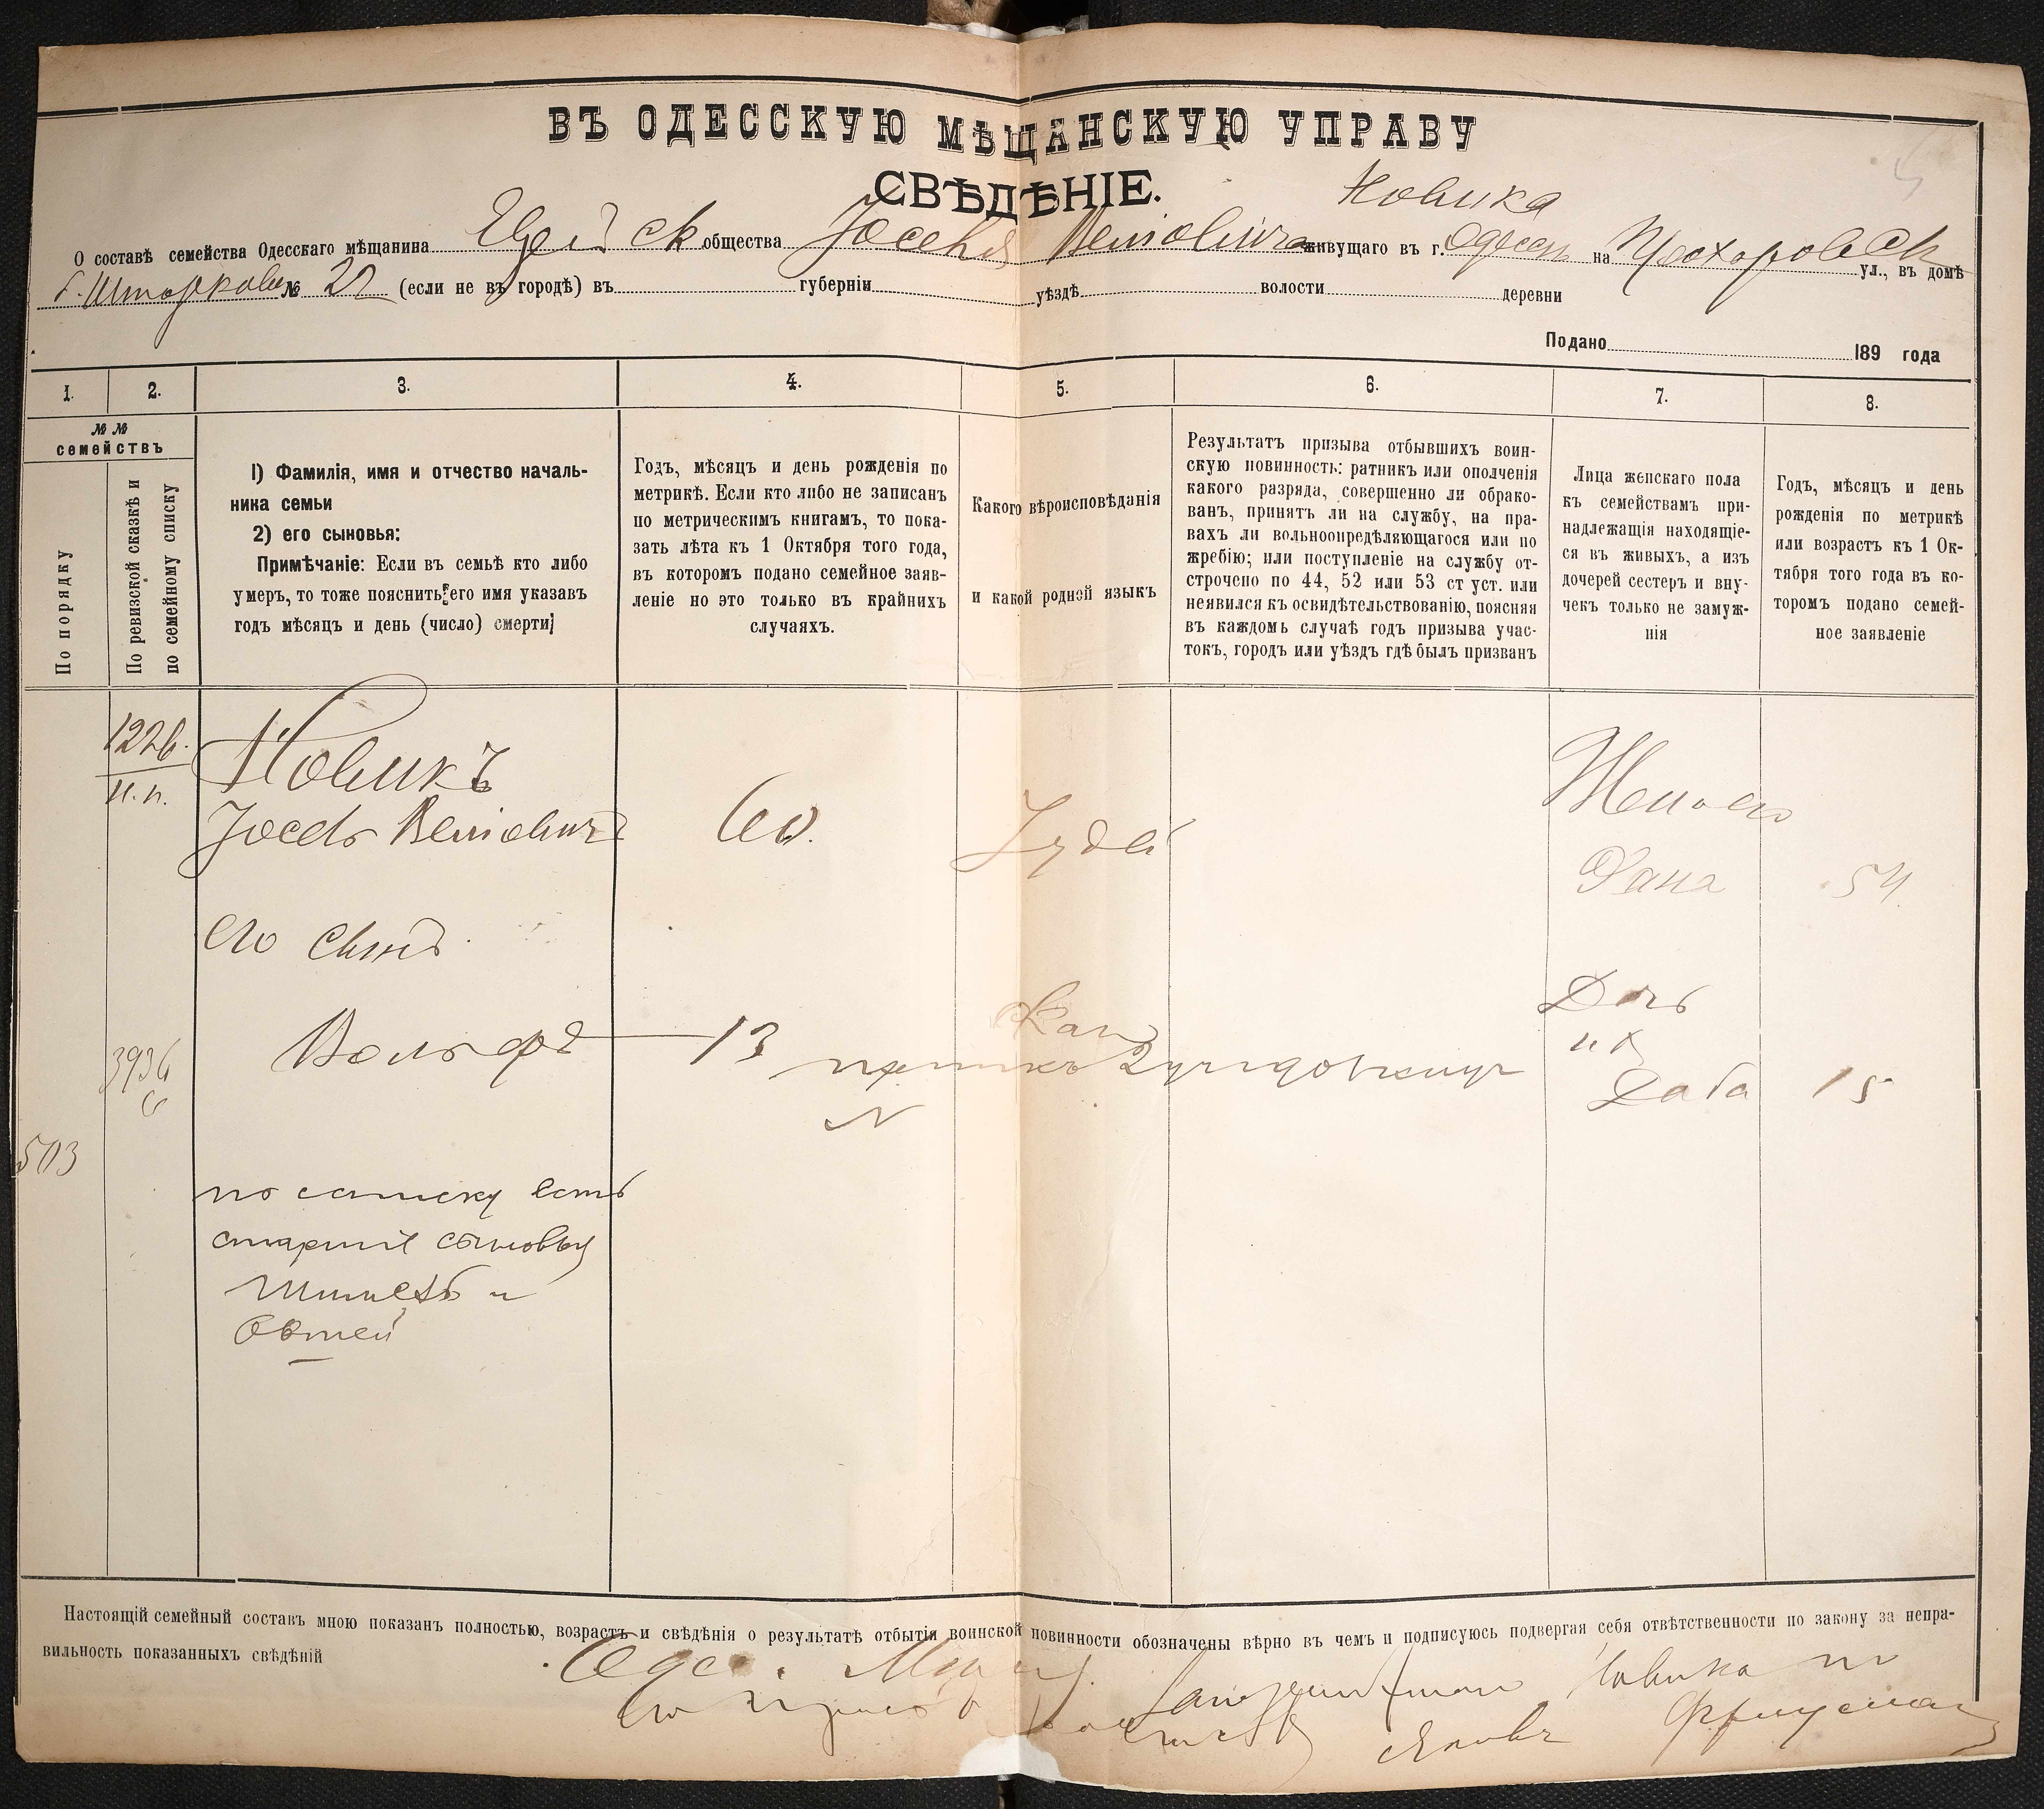 ВЪ ОДЕССКУЮ МѢЩАНСКУЮ УПРАВУ
СВѢДѢНІЕ.
Новика
О составѣ семейства Одесскаго мѣщанина общества живущаго въ г. Одессѣ на ул., въ домѣ
№ 22 (если не въ городѣ) въ губерніи уѣздѣ волости деревни
Подано 189 года
1. 2. 3. 4. 5. 6. 7. 8.
№ №
семействъ
По порядку
По ревизской сказкѣ и
по семейному списку
1) Фамилія, имя и отчество началь-
ника семьи
2) его сыновья:
Примѣчаніе: Если въ семьѣ кто либо
умеръ, то тоже пояснить его имя указавъ
годъ мѣсяцъ и день (число) смерти;
Годъ, мѣсяцъ и день рожденія по
метрикѣ. Если кто либо не записанъ
по метрическимъ книгамъ, то пока-
зать лѣта къ 1 Октября того года,
въ котором подано семейное заяв-
леніе но это только въ крайнихъ
случаяхъ.
Какого вѣроисповѣданія
и какой родной языкъ
Результатъ призыва отбывшихъ воин-
скую повинность: ратникъ или ополченія
какого разряда, совершенно ли обрако-
ванъ, принятъ ли на службу, на пра-
вахъ ли вольноопредѣляющагося или по
жребію; или поступленіе на службу от-
строчено по 44, 52 или 53 ст уст. или
неявился къ освидѣтельствованію, поясняя
въ каждомъ случаѣ годъ призыва учас-
токъ, городъ или уѣздъ гдѣ былъ призванъ
Лица женскаго пола
къ семействамъ при-
надлежащія находящіе-
ся въ живыхъ, а изъ
дочерей сестеръ и вну-
чекъ только не замуж-
нія
Годъ, мѣсяцъ и день
рожденія по метрикѣ
или возрастъ къ 1 Ок-
тября того года въ ко-
торомъ подано семей-
ное заявленіе
1226.
н. п.
Новикъ
Іосель
60.
Іудей
Жена его
Хана 54.
его сынъ
Вольфъ 13
Дочь
ихъ
Даба 15
3936
с
503
по списку есть
старшіе сыновья
и
Настоящій семейный составъ мною показанъ полностью, возрастъ и свѣдѣнія о результатѣ отбытія воинской повинности обозначены вѣрно въ чемъ и подписуюсь подвергая себя отвѣтственности по закону за непра-
вильность показанныхъ свѣдѣній
Новика по
его